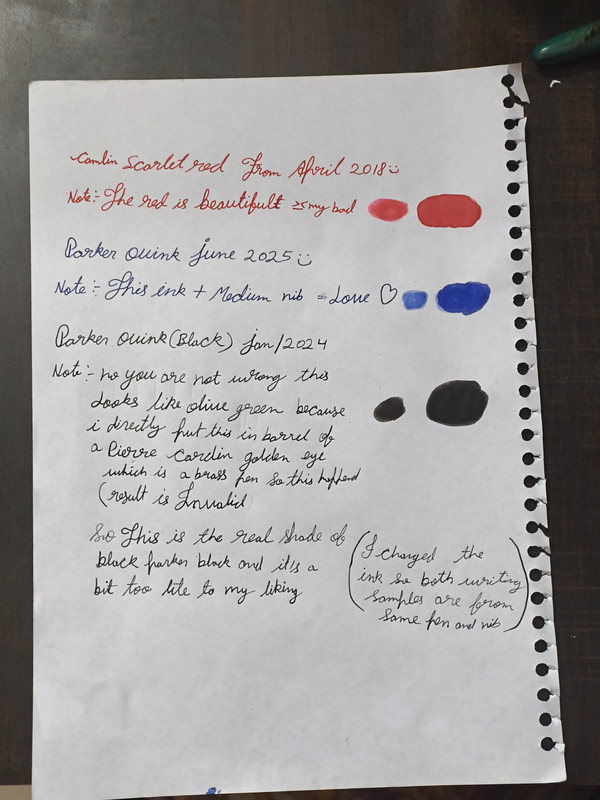 Camlin Scarlet red From April 2018 :)
Note:- The red is beautifult my bad
Parker Quink June 2025 :)
Note:- This ink + Medium nib = Love ♡
Parker Quink (Black) Jan/2024
Note:- no you are not wrong this
looks like olive green because
i directly put this in barrel of
a Pierre Cardin golden eye
which is a brass pen so this happend
(result is Invalid
So This is the real shade of
black parker black and it's a
bit too lite to my liking
(I changed the
ink so both writing
samples are from
same pen and nib)